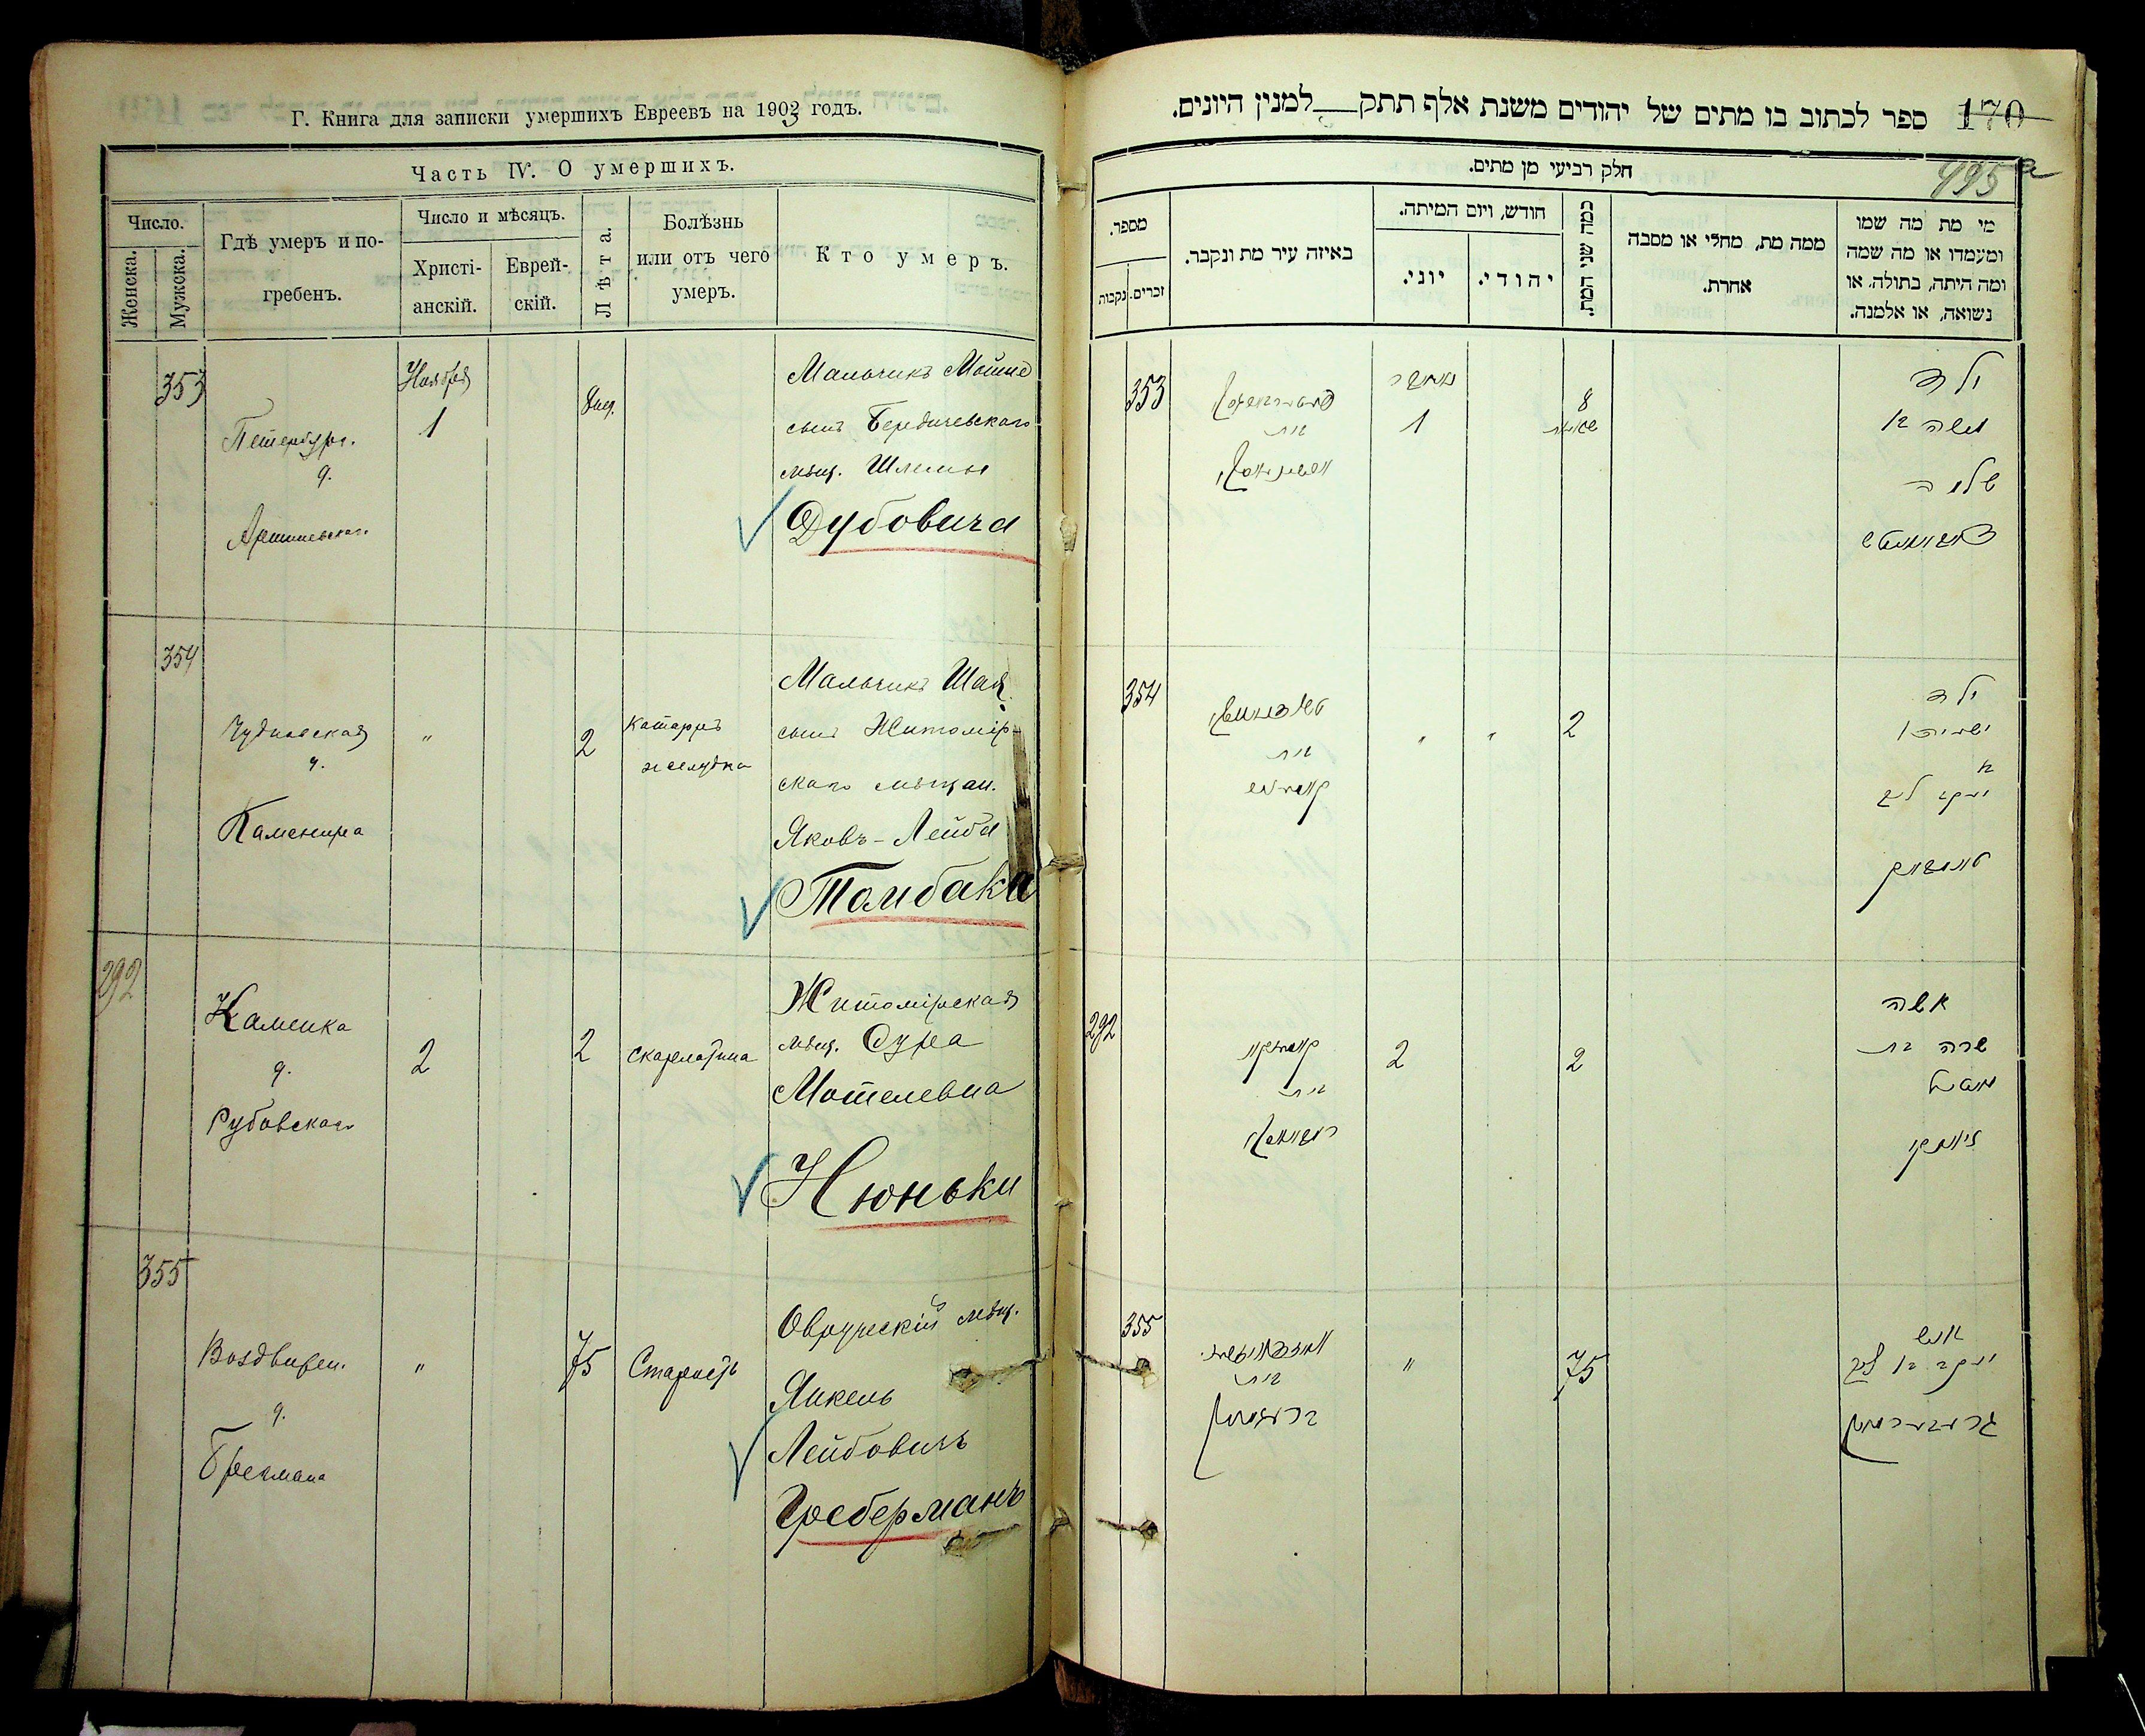 Г. Книга для записки умершихъ Евреевъ на 1903 годъ.
Часть IV. О умершихъ.
Число.
Женска.
Мужска.
Гдѣ умеръ и по-
гребенъ.
Число и мѣсяцъ.
Христі-
анскій.
Еврей-
скій.
Лѣта.
Болѣзнь
или отъ чего
умеръ.
Кто умеръ.
353
Петербург.
д.
Ноября
1
8 нед.
Мальчикъ Мошко
сынъ Бердичевскаго
мѣщ. Шлемы
Дубовича
354
Чудновская
д.
Каменира
"
2
Катарръ
желудка
Мальчикъ Шая
сынъ Житомір-
скаго мѣщан.
Яковъ-Лейба
Томбака
292
Каменка
д.
Рубовскаго
2
2
скарлатина
Житомірская
мѣщ. Сура
Мотелевна
Нюньки
355
Воздвижен.
д.
Брегмана
"
75
Старость
Овручскій мѣщ.
Янкель
Лейбовичъ
Греберманъ
ספר לכתוב בו מתים של יהודים משנת אלף תתק__למנין היונים.
170
495
חלק רביעי מן מתים.
מספר.
זכרים.
נקבות
באיזה עיר מת ונקבר.
חודש, ויום המיתה.
יוני.
יהודי.
כמה שני המת.
ממה מת, מחלי או מסבה
אחרת.
מי מת מה שמו
ומעמדו או מה שמה
ומה היתה, בתולה, או
נשואה, או אלמנה.
353
בית
1
8
ילד
משה בן
שלמה
354
בית
"
"
2
ילד
ישעיה
בן
יעקב ליב
טאמבאק
292
בית
2
2
אשה
שרה בת
מאטל
355
בית
"
75
איש
יעקב בן ליב
גרעבערמאן